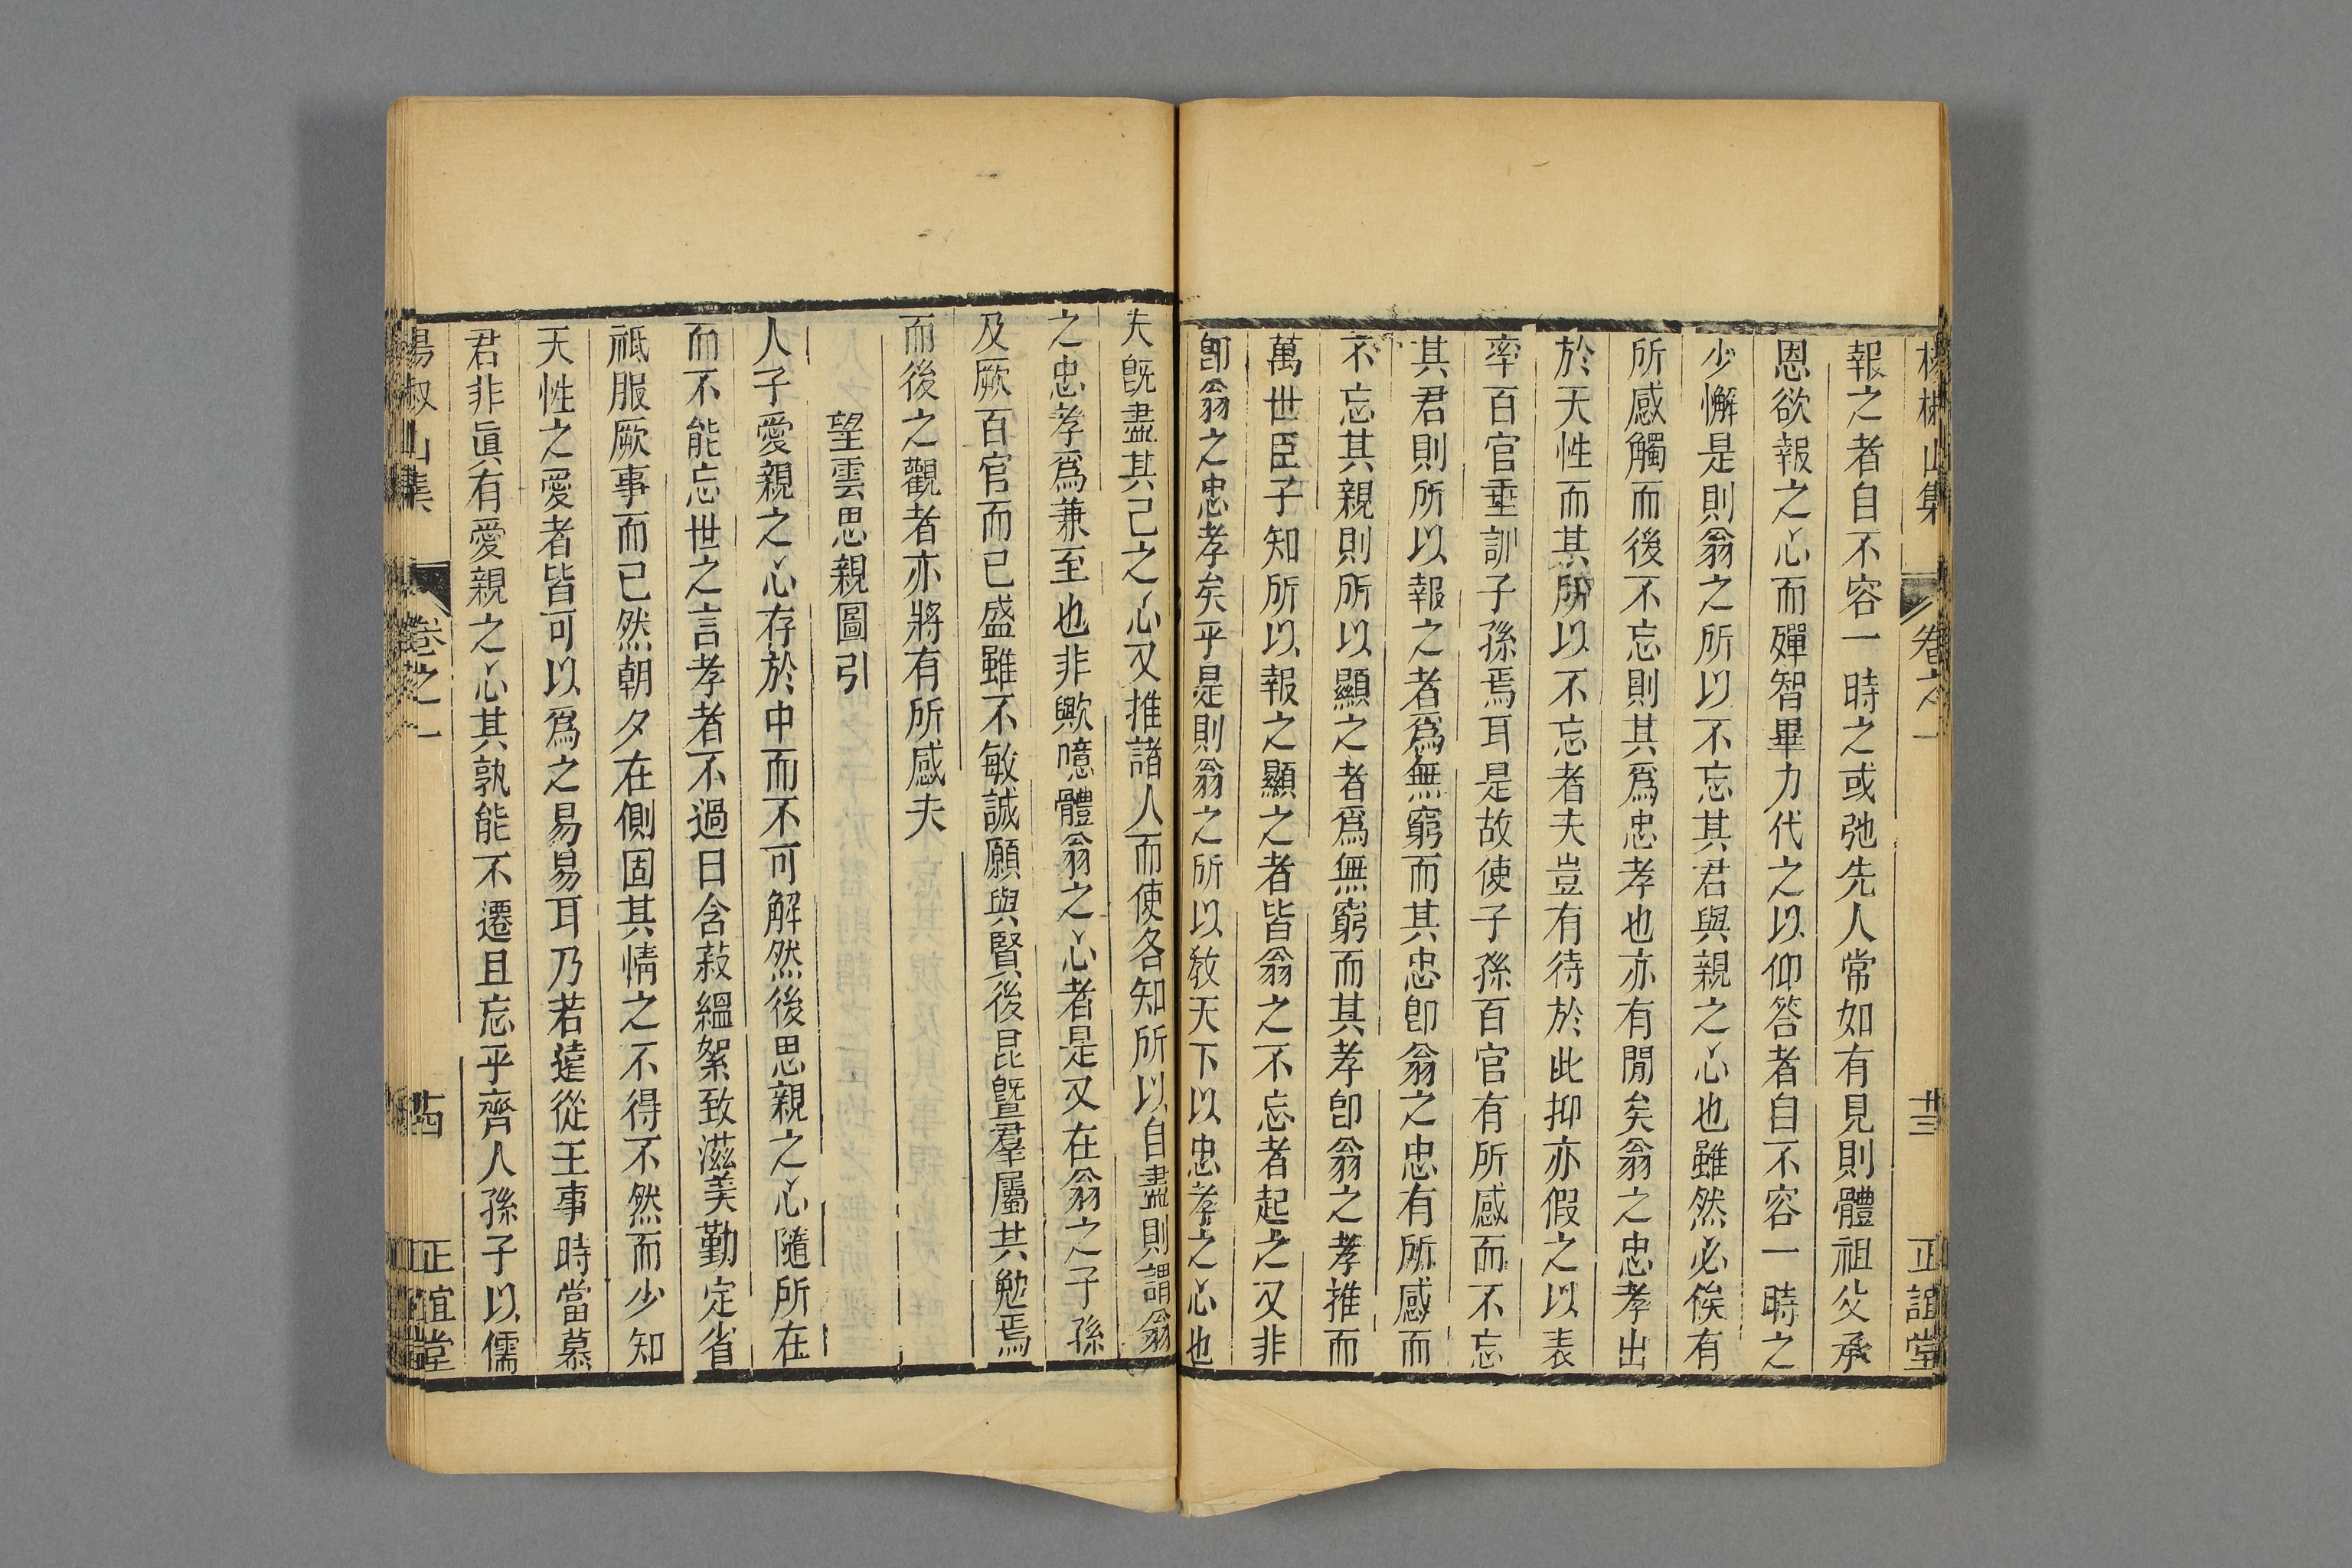 椒山集 卷之一 廿三 正誼堂
報之者自不容一時之或弛先人常如有見則體祖父承
恩欲報之心而殫智畢力代之以仰答者自不容一時之
少懈是則翁之所以不忘其君與親之心也雖然必俟有
所感觸而後不忘則其爲忠孝也亦有閒矣翁之忠孝出
於天性而其所以不忘者夫豈有待於此抑亦假之以表
率百官垂訓子孫焉耳是故使子孫百官有所感而不忘
其君則所以報之者爲無窮而其忠卽翁之忠有所感而
不忘其親則所以顯之者爲無窮而其孝卽翁之孝推而
萬世臣子知所以報之顯之者皆翁之不忘者起之又非
卽翁之忠孝矣乎是則翁之所以敎天下以忠孝之心也
夫旣盡其己之心又推諸人而使各知所以自盡則謂翁
之忠孝爲兼至也非歟噫體翁之心者是又在翁之子孫
及厥百官而已盛雖不敏誠願與賢後昆曁羣屬共勉焉
而後之觀者亦將有所感夫
望雲思親圖引
人子愛親之心存於中而不可解然後思親之心隨所在
而不能忘世之言孝者不過日含菽縕絮致滋美勤定省
祗服厥事而已然朝夕在側固其情之不得不然而少知
天性之愛者皆可以爲之易易耳乃若遠從王事時當慕
君非眞有愛親之心其孰能不遷且忘乎齊人孫子以儒
楊椒山集 卷之一 廿四 正誼堂